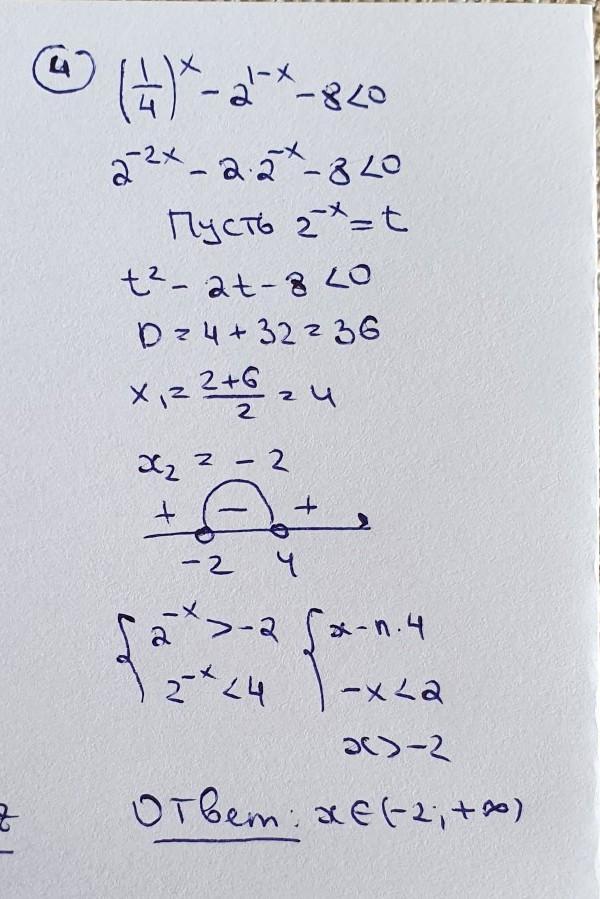 4 (1/4)^x - 2^{1-x} - 8 < 0
2^{-2x} - 2·2^{-x} - 8 < 0
Пусть 2^{-x} = t
t² - 2t - 8 < 0
D = 4 + 32 = 36
x₁ = (2+6)/2 = 4
x₂ = -2
+ - +
-2 4
{ 2^{-x} > -2 { x - п. ч
2^{-x} < 4 -x < 2
x > -2
Ответ: x ∈ (-2; +∞)